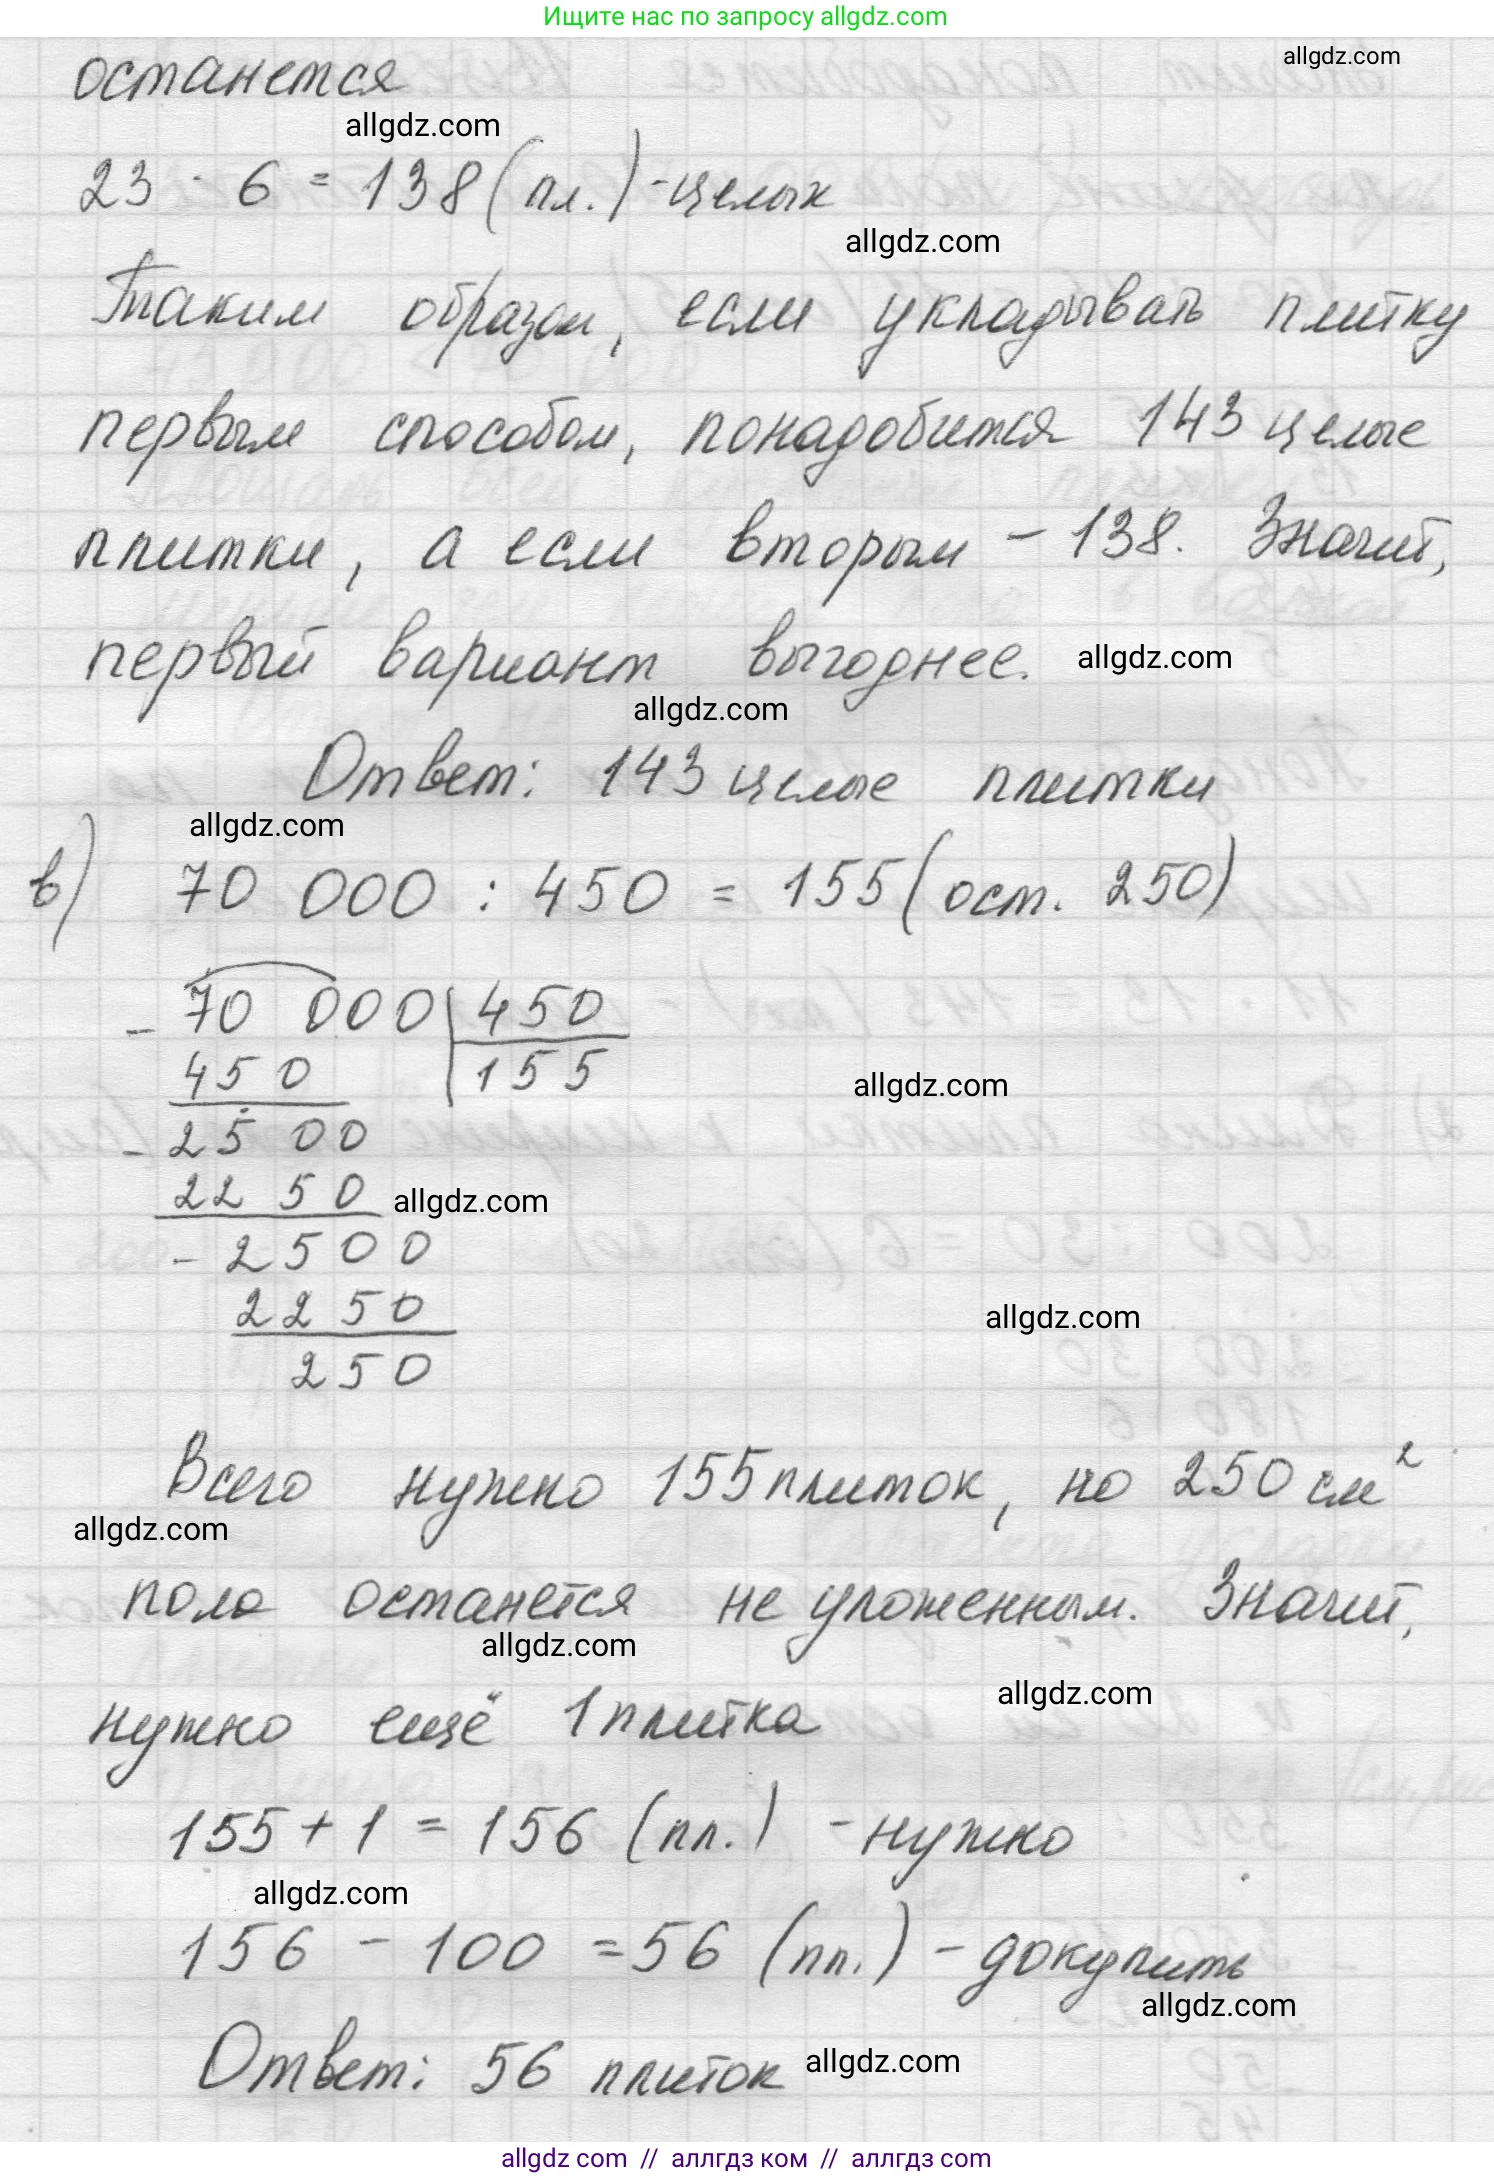 Ищите нас по запросу allgdz.com
allgdz.com
останется
allgdz.com
23 · 6 = 138 (пл.) - целых
allgdz.com
Таким образом, если укладывать плитку
первым способом, понадобится 143 целые
плитки, а если вторым – 138. Значит,
первый вариант выгоднее.
allgdz.com
allgdz.com
Ответ: 143 целые плитки
allgdz.com
в) 70 000 : 450 = 155 (ост. 250)
- 70 000 | 450
450 | 155
allgdz.com
- 25 00
22 50
allgdz.com
- 2500
2250
allgdz.com
250
Всего нужно 155 плиток, но 250 см²
allgdz.com
пола останется не уложенным. Значит,
allgdz.com
allgdz.com
нужно ещё 1 плитка
155 + 1 = 156 (пл.) - нужно
allgdz.com
156 - 100 = 56 (пл.) - докупить
allgdz.com
Ответ: 56 плиток
allgdz.com
allgdz com // аллгдз ком // аллгдз com